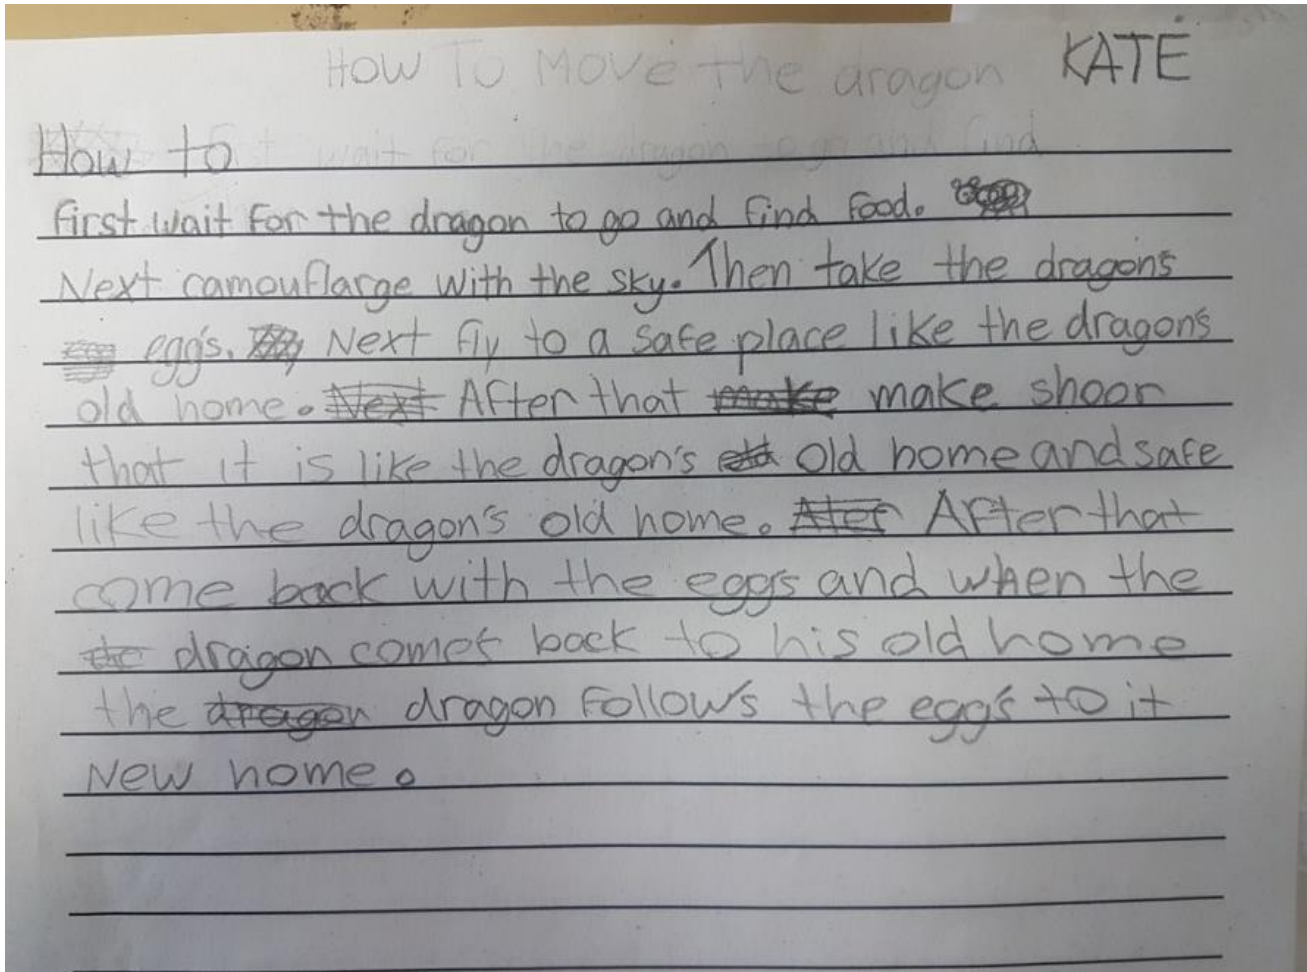 How To Move the dragon KATE
How to
first wait for the dragon to go and find food.
Next camouflarge with the sky. Then take the dragons
egg's. Next fly to a safe place like the dragon's
old home. Next After that make make shoor
that it is like the dragon's old old home and safe
like the dragon's old home. Ater After that
come back with the eggs and when the
the dragon comes back to his old home
the dragon dragon follow's the egg's to it
New home.